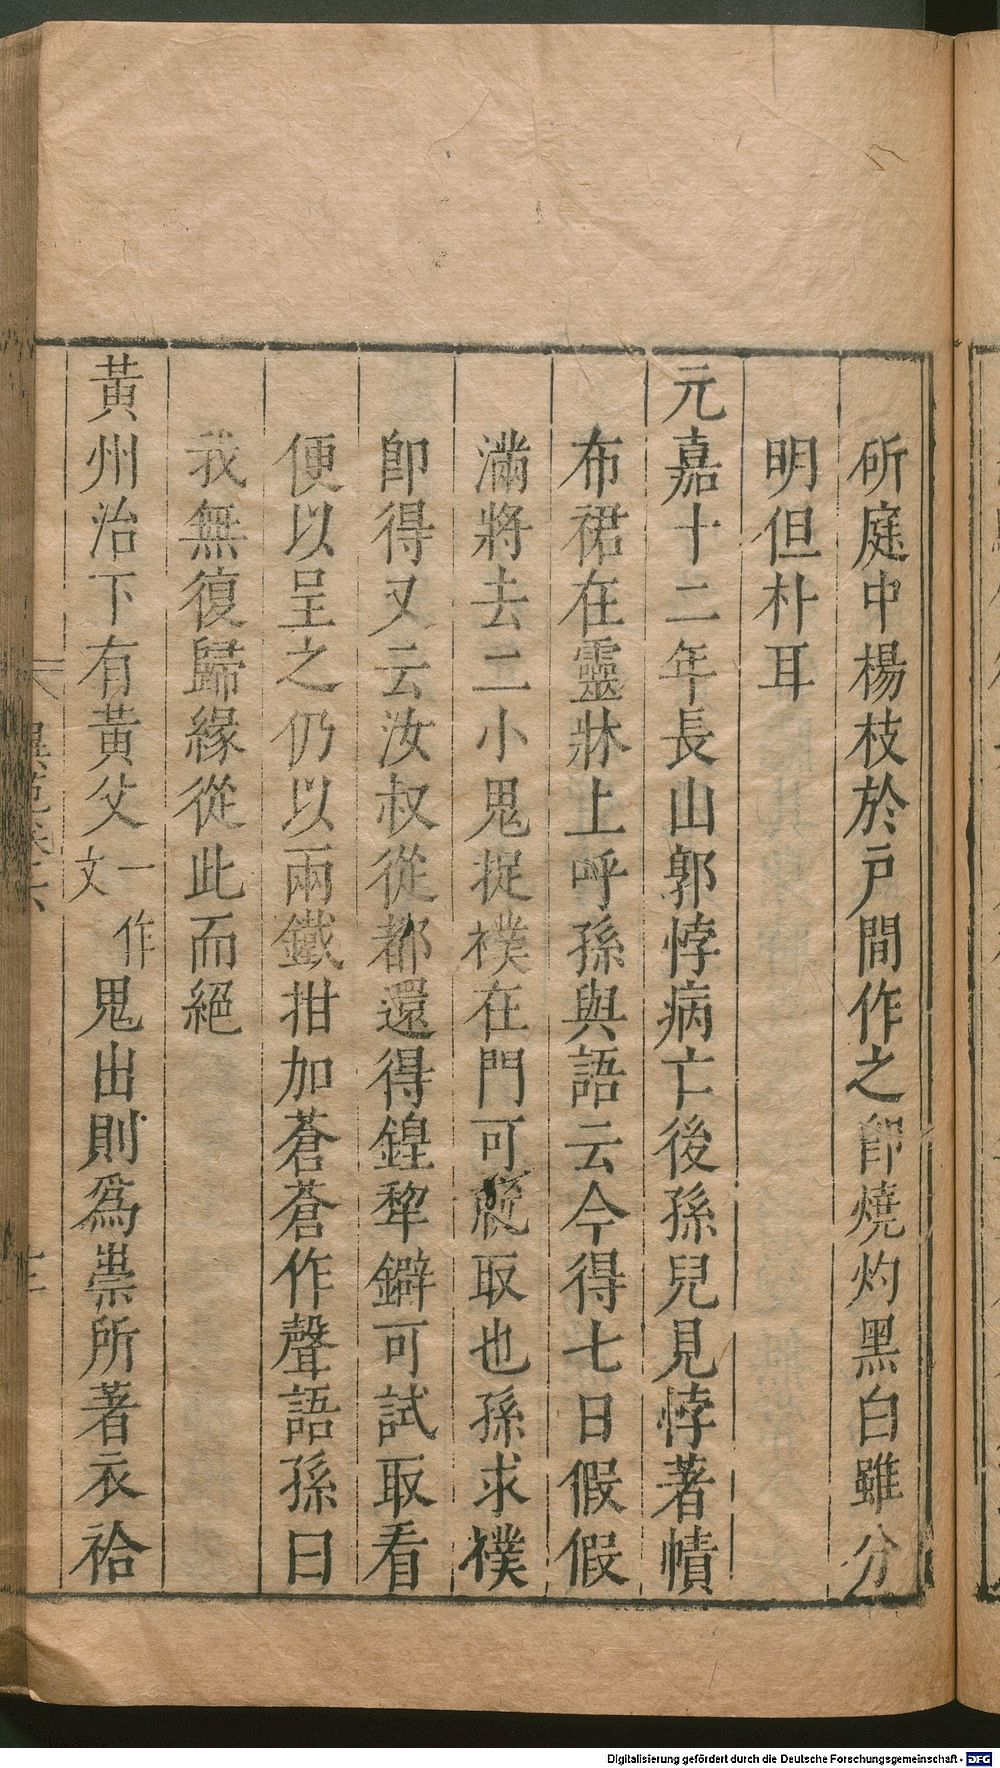 斫庭中楊枝於戶間作之卽燒灼黑白雖分
明但朴耳
元嘉十二年長山郭悖病亡後孫兒見悖著幘
布裙在靈牀上呼孫與語云今得七日假假
滿將去二小鬼捉襆在門可取也孫求襆
卽得又云汝叔從都還得鍠犂鐴可試取看
便以呈之仍以兩鐵拑加蒼蒼作聲語孫曰
我無復歸緣從此而絕
黃州治下有黃父一作文鬼出則爲祟所著衣袷
異苑卷六
Digitalisierung gefördert durch die Deutsche Forschungsgemeinschaft - DFG